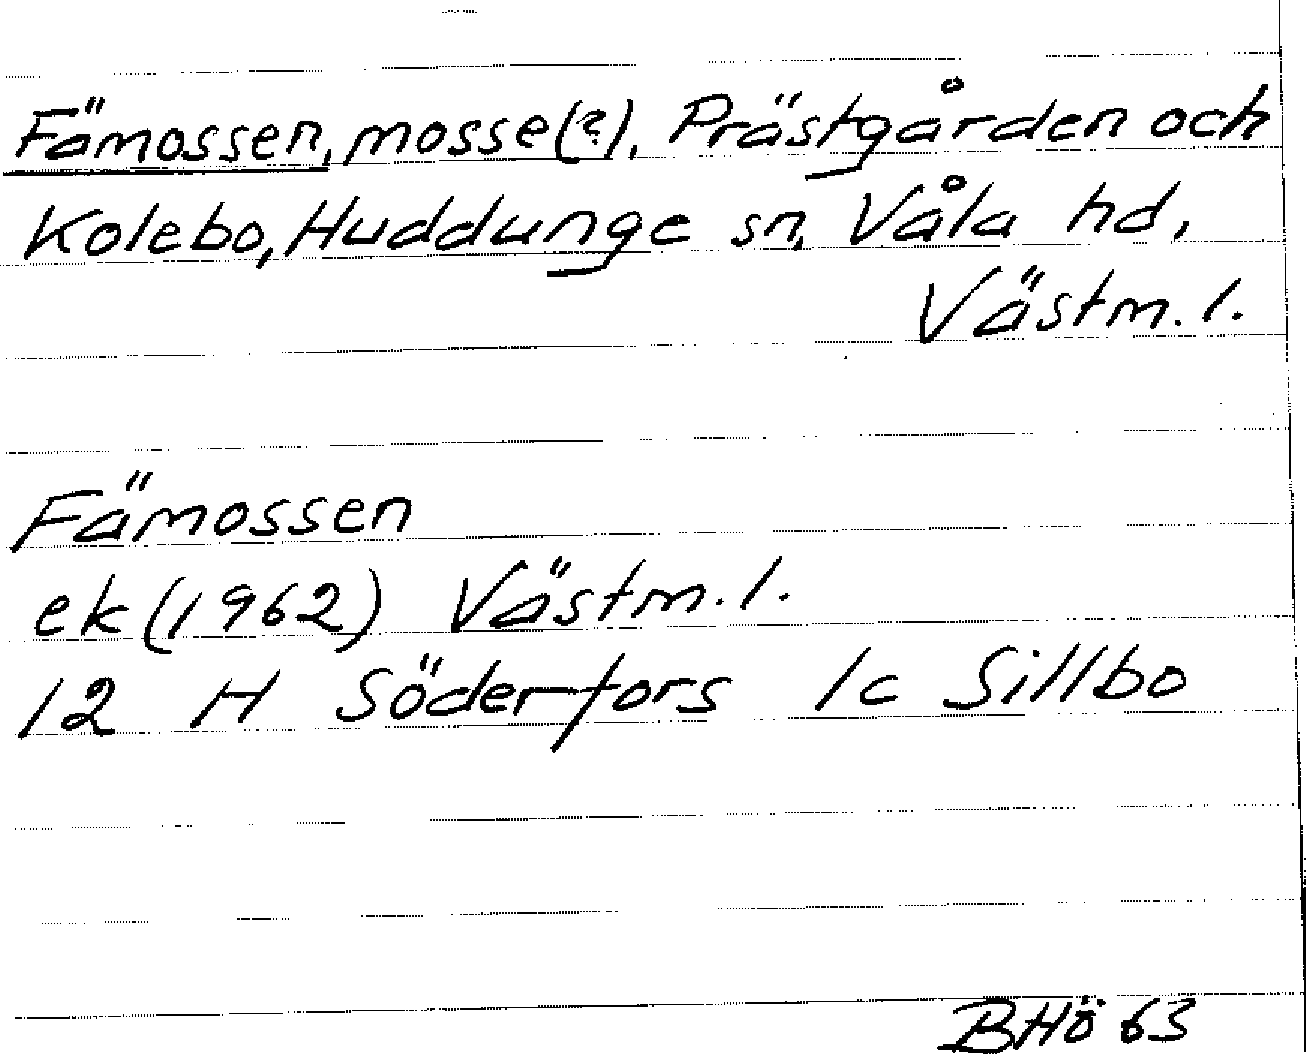 Fämossen, mosse(?), Prästgården och
Kolebo, Huddunge sn, Våla hd,
Västm. l.
Fämossen
ek (1962) Västm. l.
12 H Söderfors 1c Sillbo
BHö 63